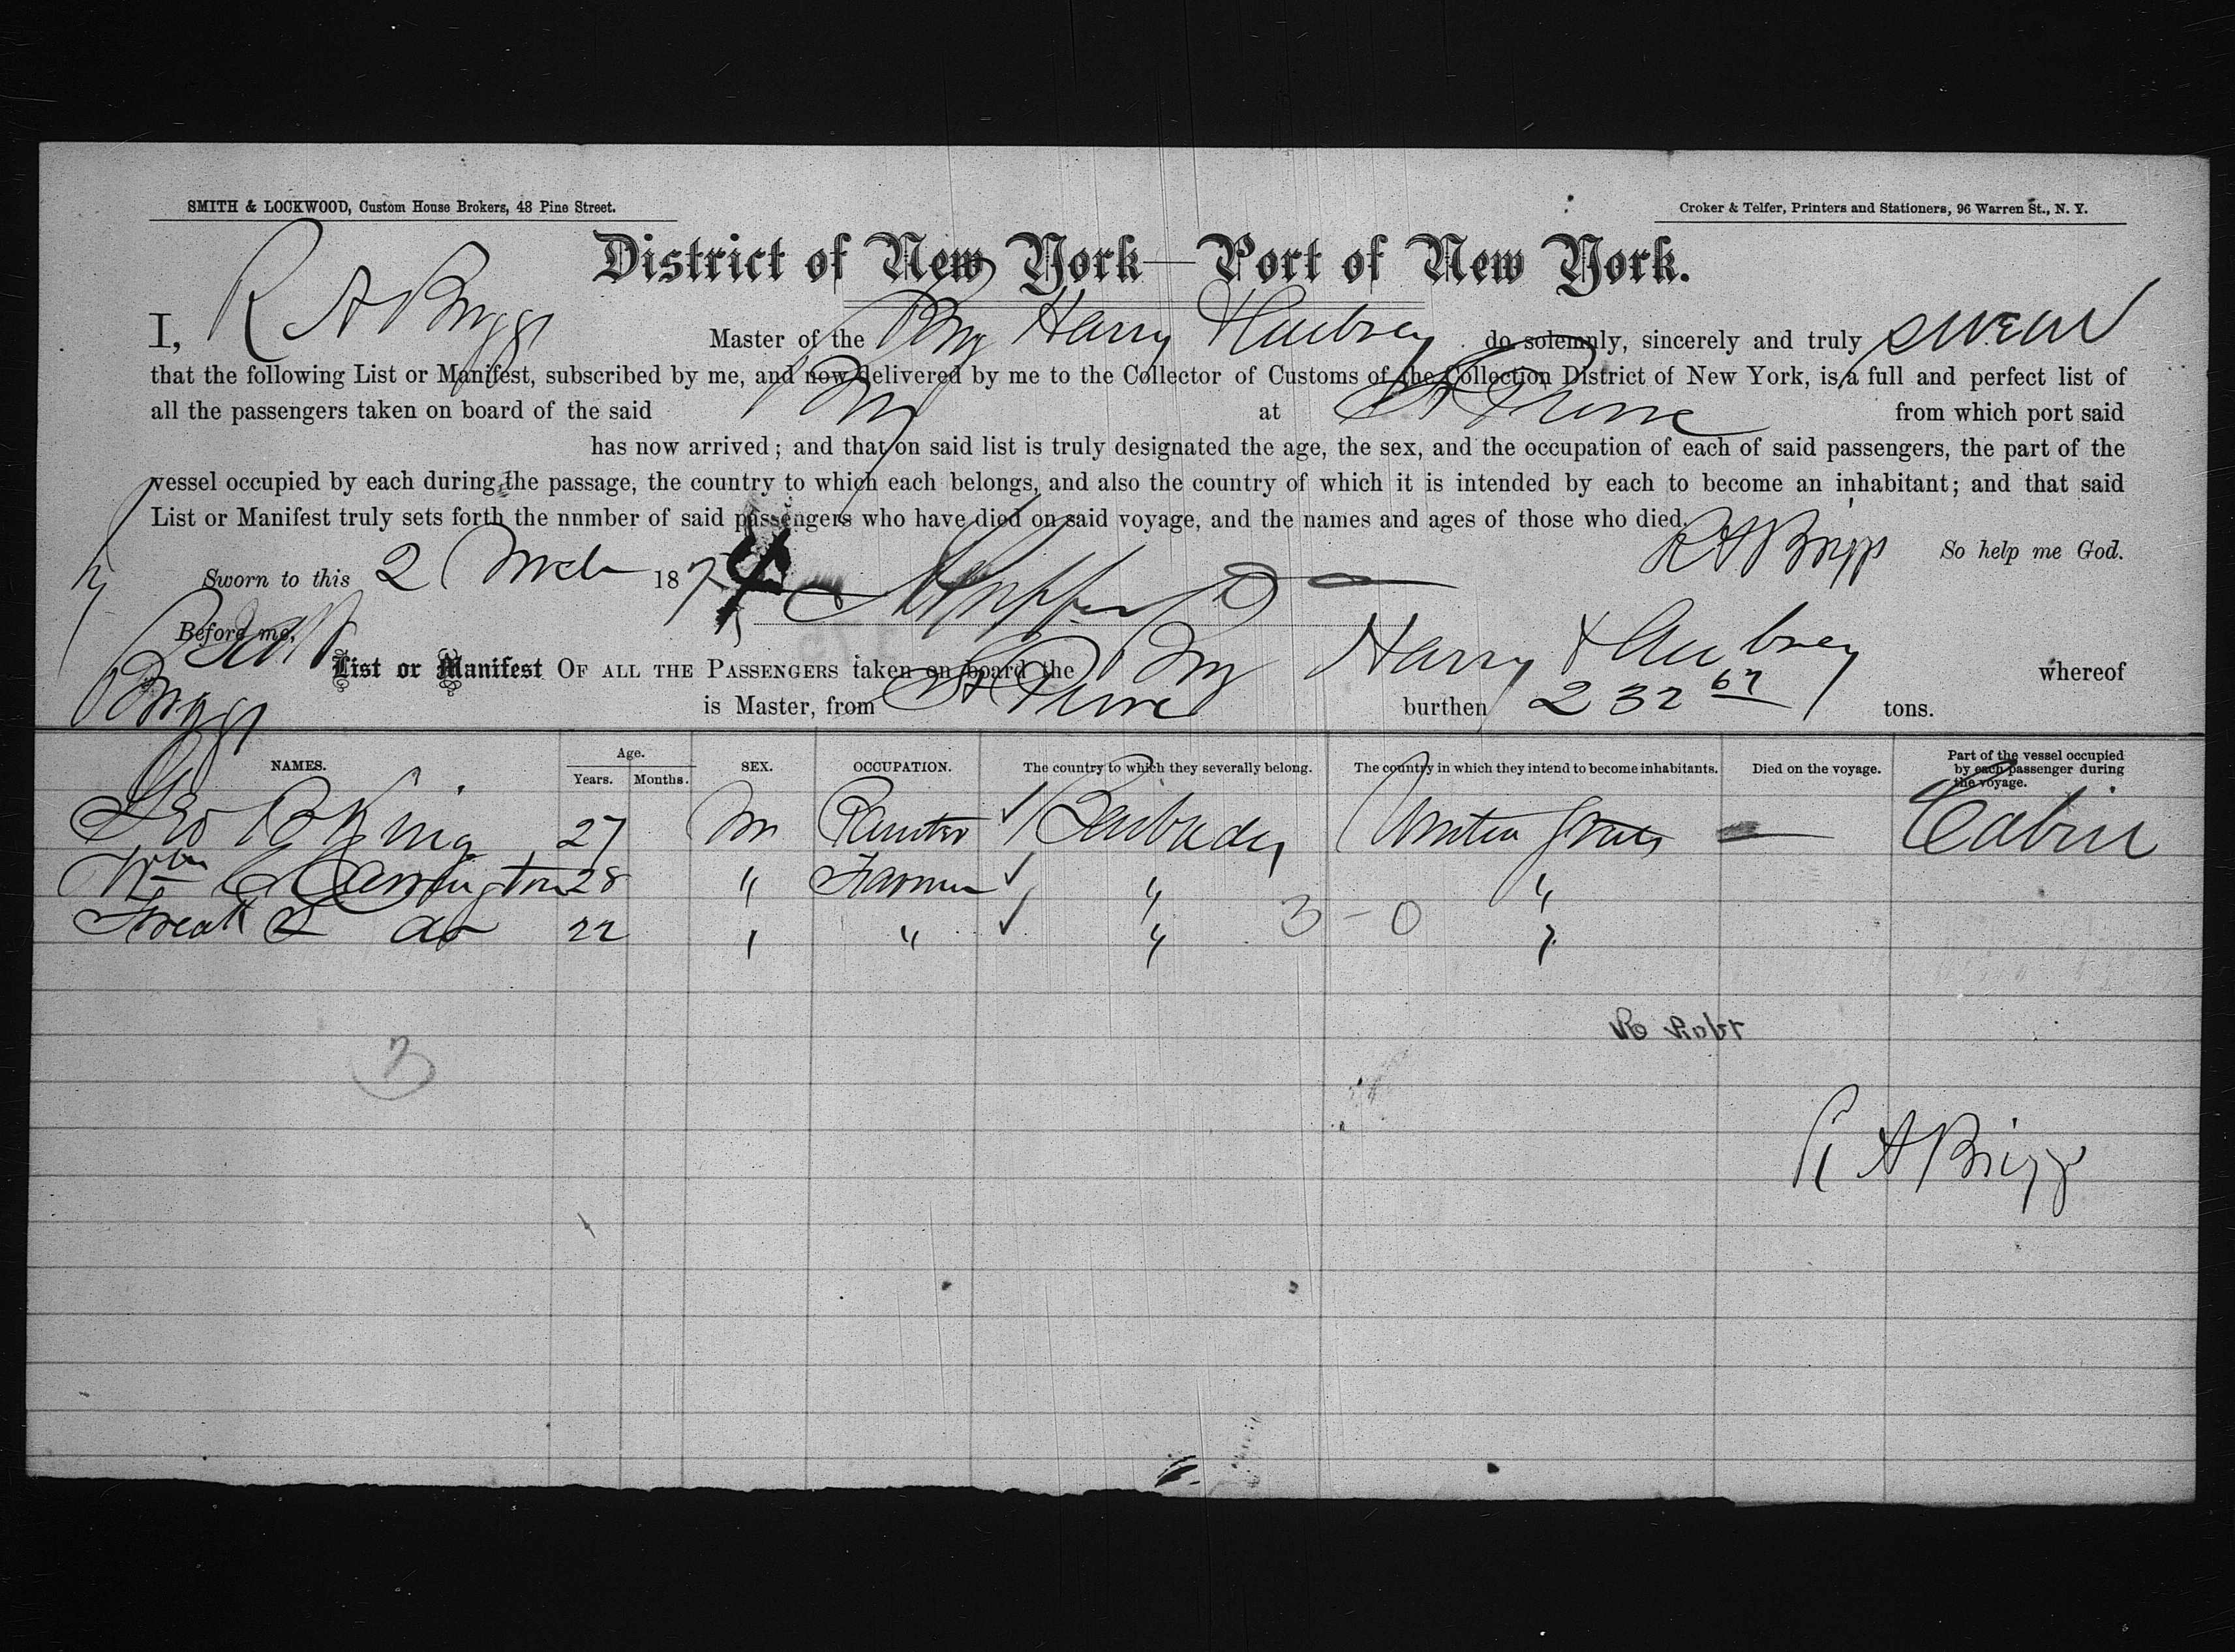 SMITH & LOCKWOOD, Custom House Brokers, 43 Pine Street.
Croker & Telfer, Printers and Stationers, 96 Warren St., N. Y.
District of New York—Port of New York.
I, R A Briggs Master of the Brig Harry & Aubrey do solemnly, sincerely and truly swear
that the following List or Manifest, subscribed by me, and now delivered by me to the Collector of Customs of the Collection District of New York, is a full and perfect list of
all the passengers taken on board of the said Brig at St Pierre from which port said
has now arrived; and that on said list is truly designated the age, the sex, and the occupation of each of said passengers, the part of the
vessel occupied by each during the passage, the country to which each belongs, and also the country of which it is intended by each to become an inhabitant; and that said
List or Manifest truly sets forth the number of said passengers who have died on said voyage, and the names and ages of those who died.
R A Briggs So help me God.
Sworn to this 2 Mch 1874
Before me,
List or Manifest OF ALL THE PASSENGERS taken on board the Brig Harry & Aubrey whereof
Briggs is Master, from St Pierre burthen 232 67 tons.
NAMES. Age. Years. Months. SEX. OCCUPATION. The country to which they severally belong. The country in which they intend to become inhabitants. Died on the voyage. Part of the vessel occupied by each passenger during the voyage.
Geo B King 27 M Planter Barbados United States — Cabin
Wm C Carrington 28 " Farmer " "
do 22 " " " "
3 - 0
3
R A Briggs